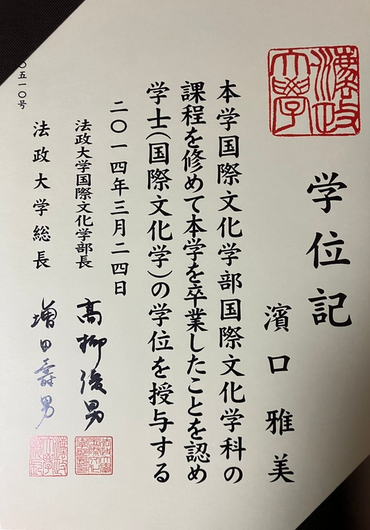 学位記
濱口雅美
本学国際文化学部国際文化学科の
課程を修めて本学を卒業したことを認め
学士(国際文化学)の学位を授与する
二〇一四年三月二四日
法政大学国際文化学部長
高柳俊男
法政大学総長
増田壽男
〇五一〇号
法政大学